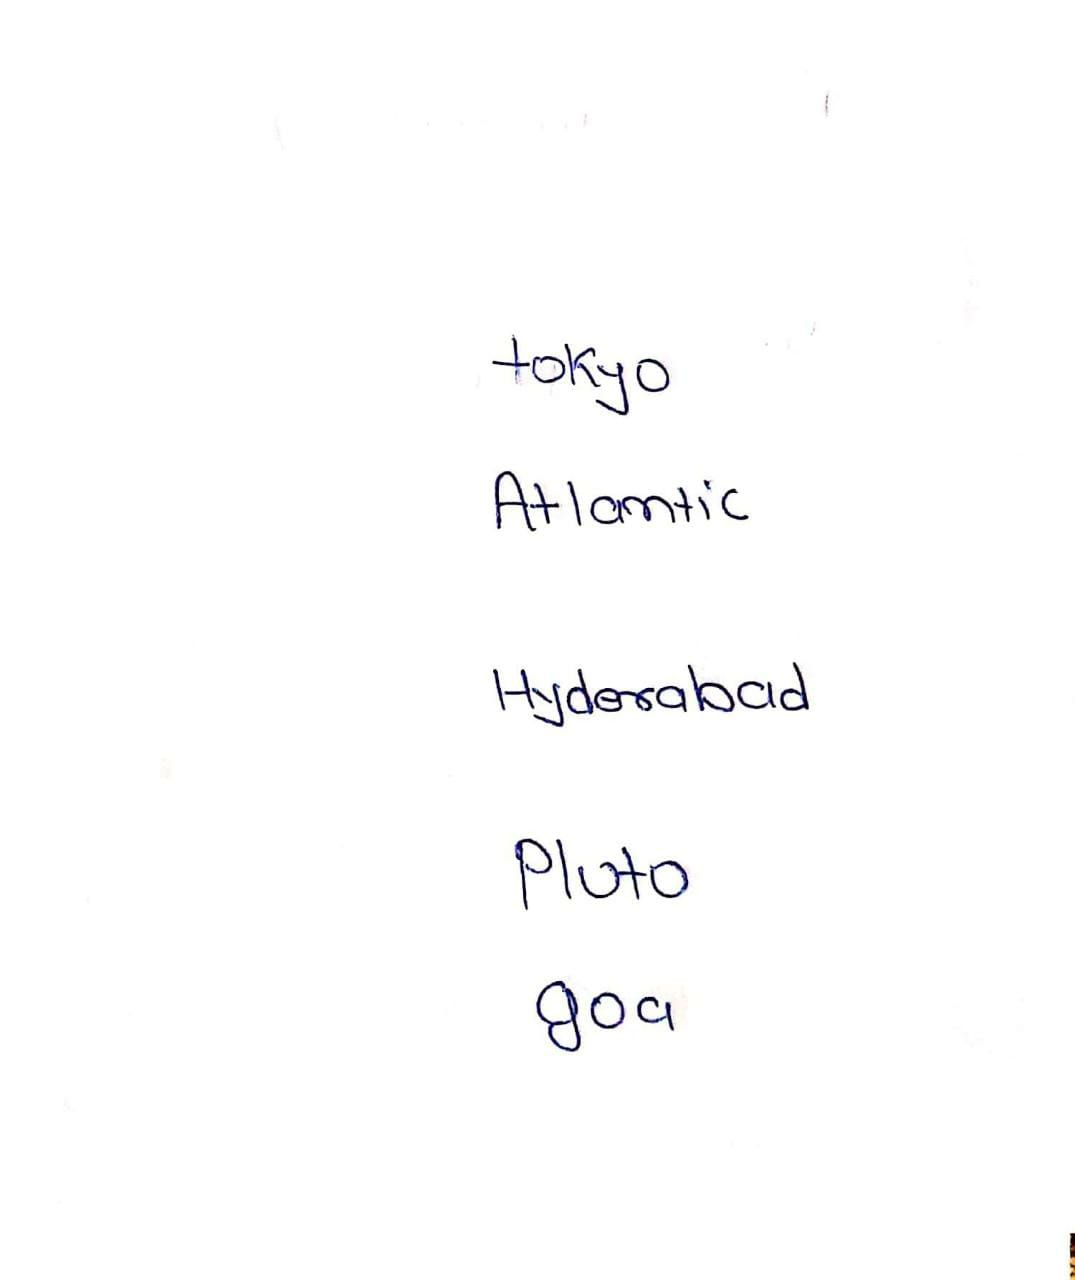 tokyo
Atlantic
Hyderabad
Pluto
goa